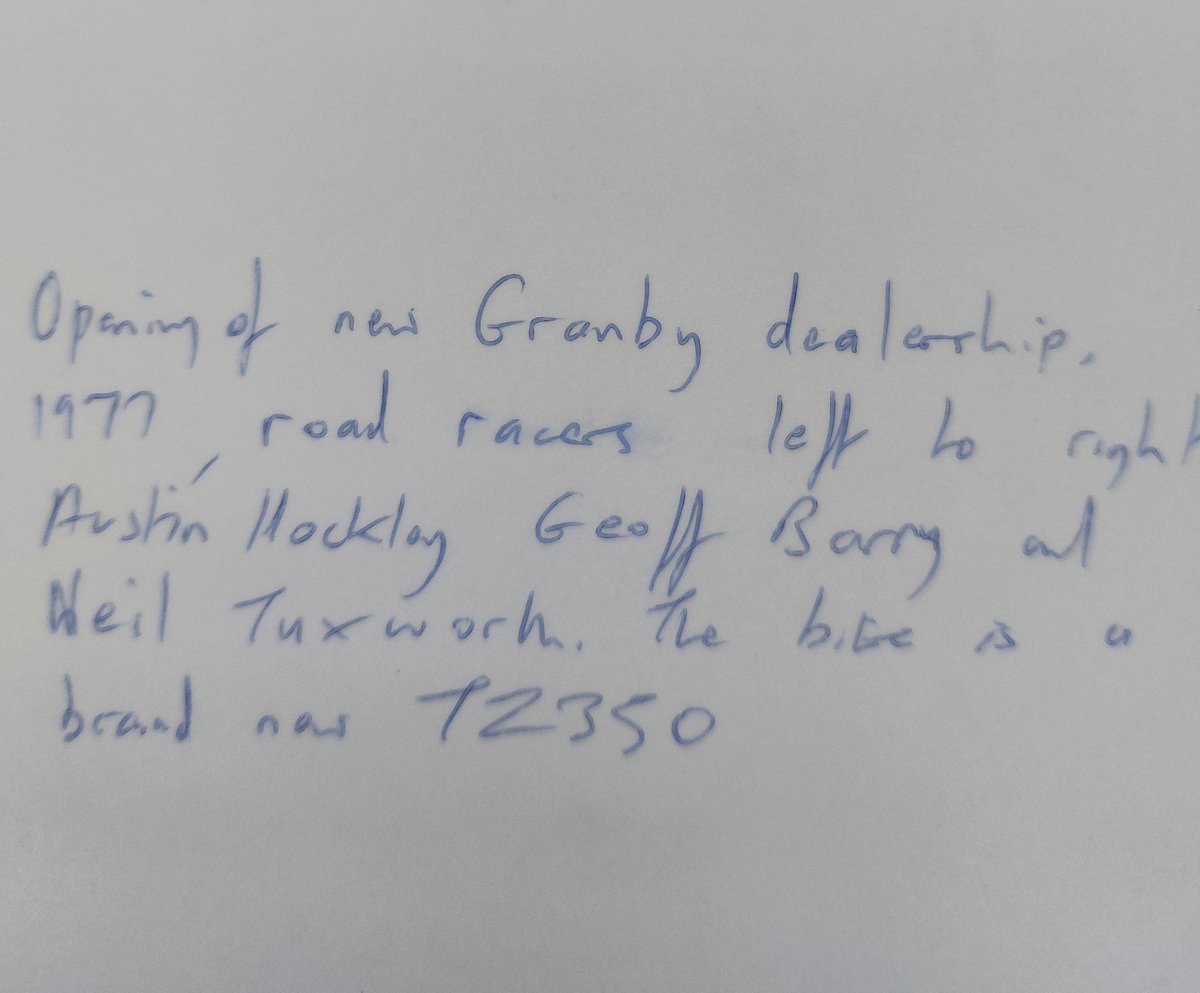 Opening of new Granby dealership,
1977, road racers left to right
Austin Hockley Geoff Barry and
Neil Tuxworth. The bike is a
brand new TZ350